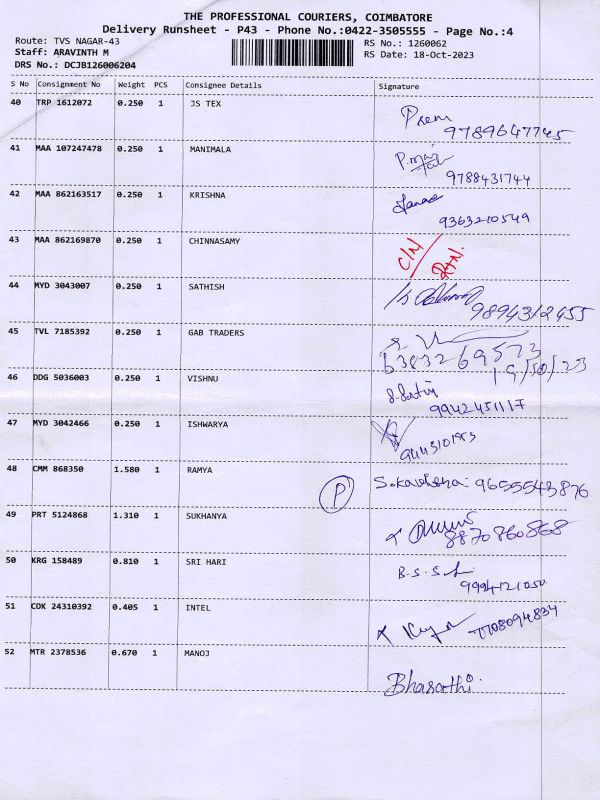 THE PROFESSIONAL COURIERS, COIMBATORE
Delivery Runsheet - P43 - Phone No.:0422-3505555 - Page No.:4
Route: TVS NAGAR-43
RS No.: 1260062
Staff: ARAVINTH M
RS Date: 18-Oct-2023
DRS No.: DCJB126006204
S No Consignment No Weight PCS Consignee Details Signature
40 TRP 1612072 0.250 1 JS TEX
Prem
9789647745
41 MAA 107247478 0.250 1 MANIMALA
9788431744
42 MAA 862163517 0.250 1 KRISHNA
9363210549
43 MAA 862169870 0.250 1 CHINNASAMY
C/N
Rtn.
44 MYD 3043007 0.250 1 SATHISH
9894312455
45 TVL 7185392 0.250 1 GAB TRADERS
6383269573
19/10/23
46 DDG 5036003 0.250 1 VISHNU
9942451117
47 MYD 3042466 0.250 1 ISHWARYA
48 CMM 868350 1.580 1 RAMYA
P
9655543876
49 PRT 5124868 1.310 1 SUKHANYA
8870860868
50 KRG 158489 0.810 1 SRI HARI
9994121050
51 COK 24310392 0.405 1 INTEL
7708094834
52 MTR 2378536 0.670 1 MANOJ
Bharathi